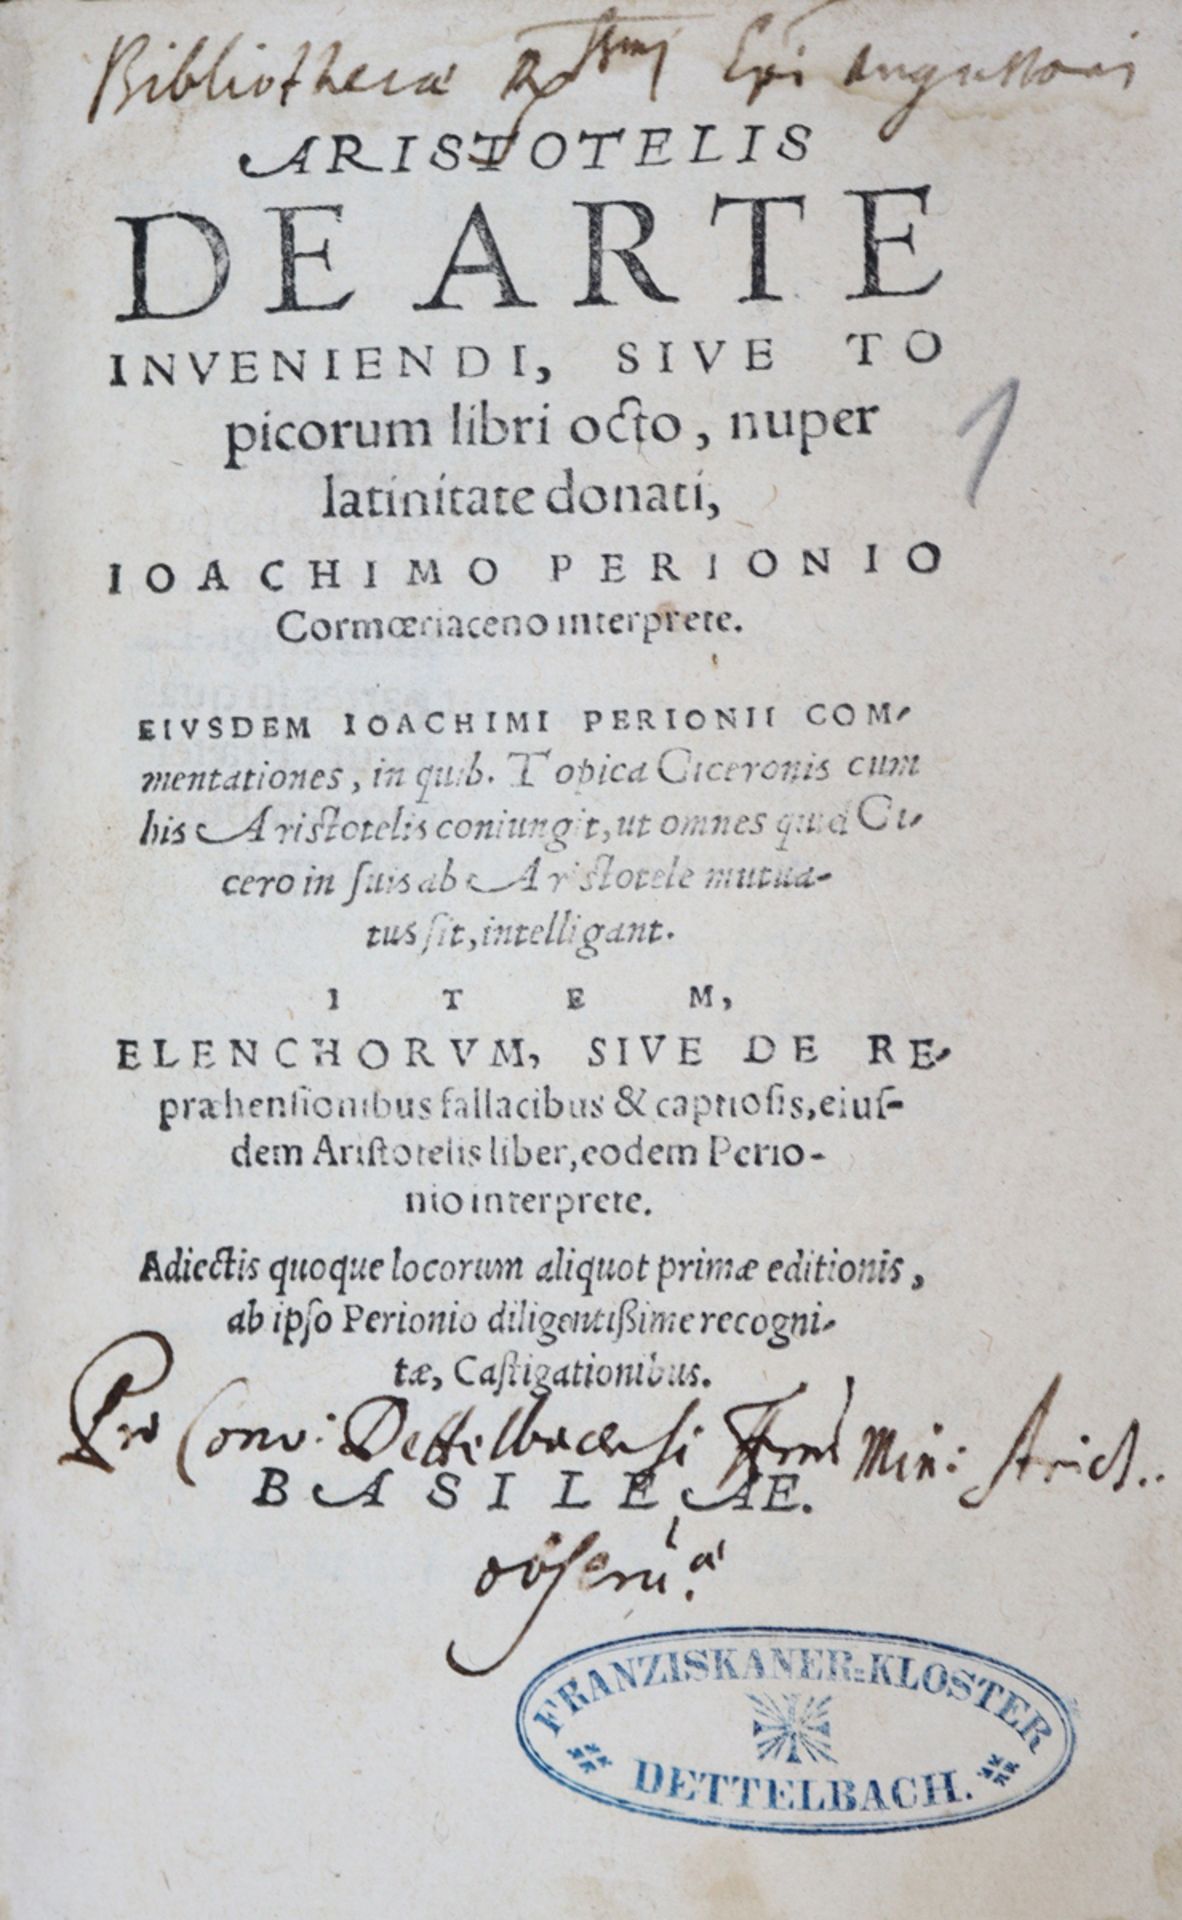 Bibliothecæ Rssimi Epi Augustani
ARISTOTELIS
DE ARTE
INVENIENDI, SIVE TO
picorum libri octo, nuper
latinitate donati,
IOACHIMO PERIONIO
Cormœriaceno interprete.
EIVSDEM IOACHIMI PERIONII COM-
mentationes, in quib. Topica Ciceronis cum
his Aristotelis coniungit, ut omnes quid Ci-
cero in ſuis ab Aristotele mutua-
tus ſit, intelligant.
ITEM,
ELENCHORVM, SIVE DE RE-
præhenſionibus fallacibus & captioſis, eiuſ-
dem Ariſtotelis liber, eodem Perio-
nio interprete.
Adiectis quoque locorum aliquot primæ editionis,
ab ipſo Perionio diligentiſſime recogni-
tæ, Caſtigationibus.
Pro Conv: Dettelbacensi Min: Strict..
BASILEAE.
observ:a
1
FRANZISKANER=KLOSTER
DETTELBACH.